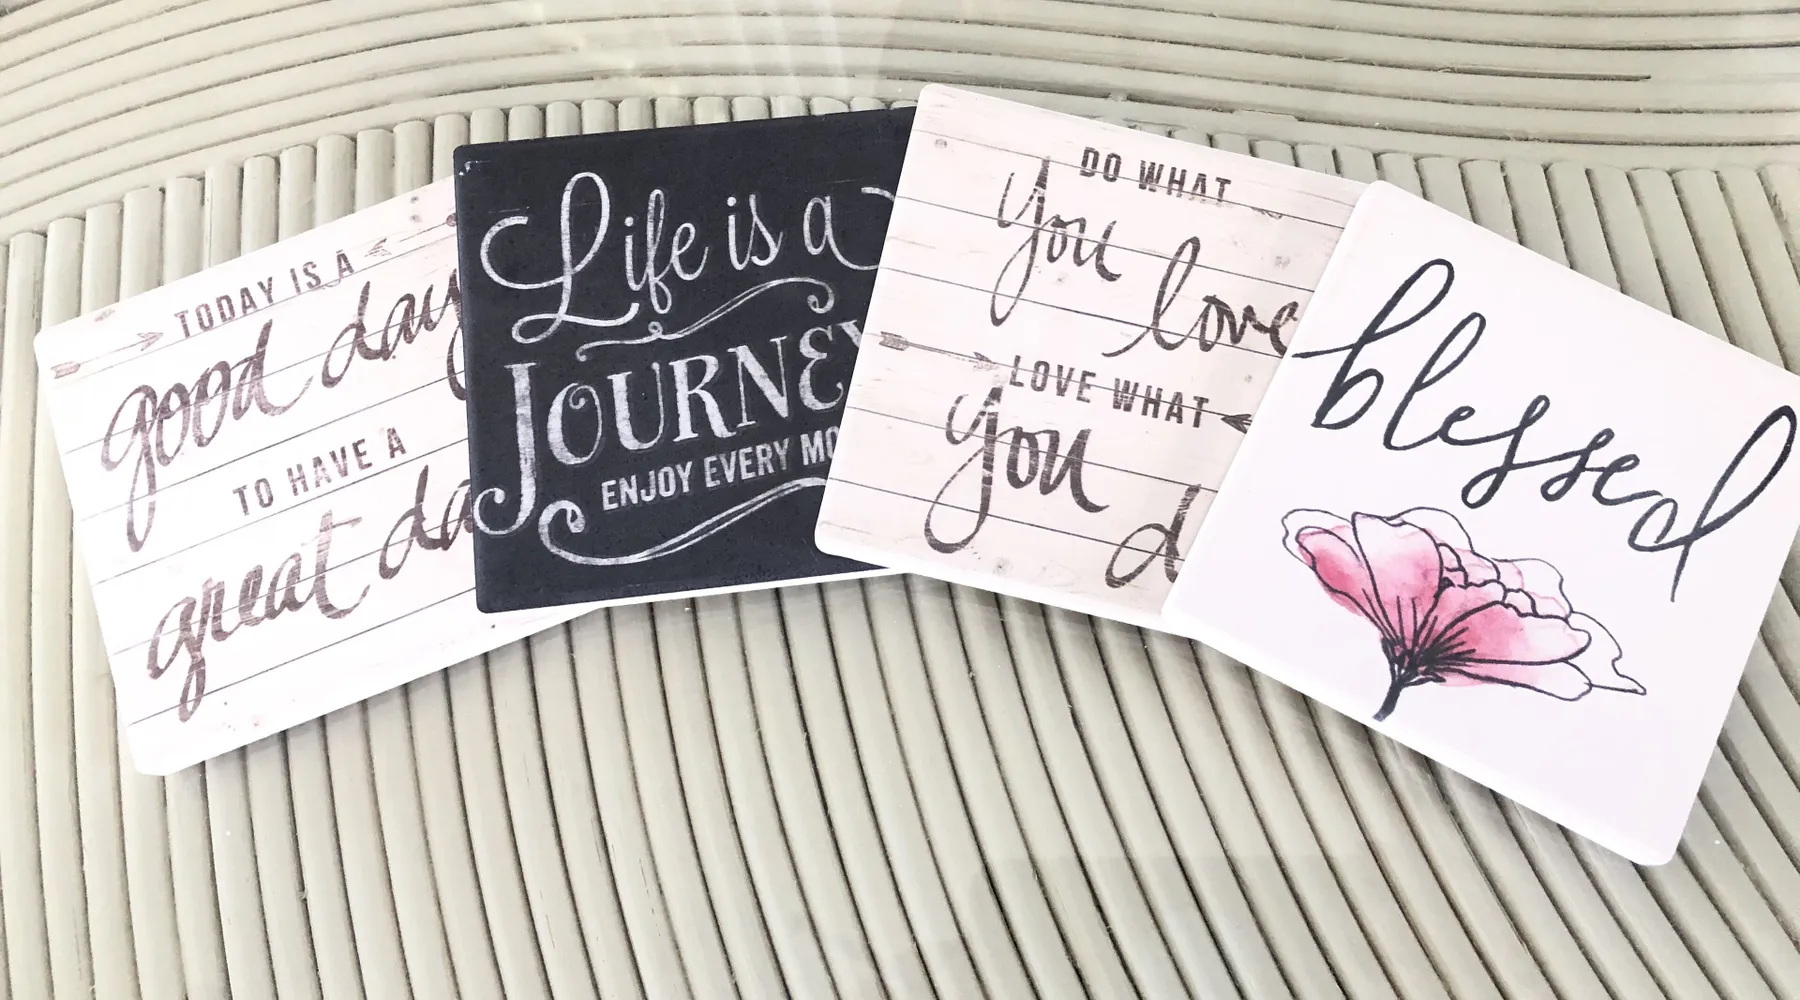 TODAY IS A
good day
TO HAVE A
great da
Life is a
JOURNEY
ENJOY EVERY MO
DO WHAT
you love
LOVE WHAT
you d
blessed